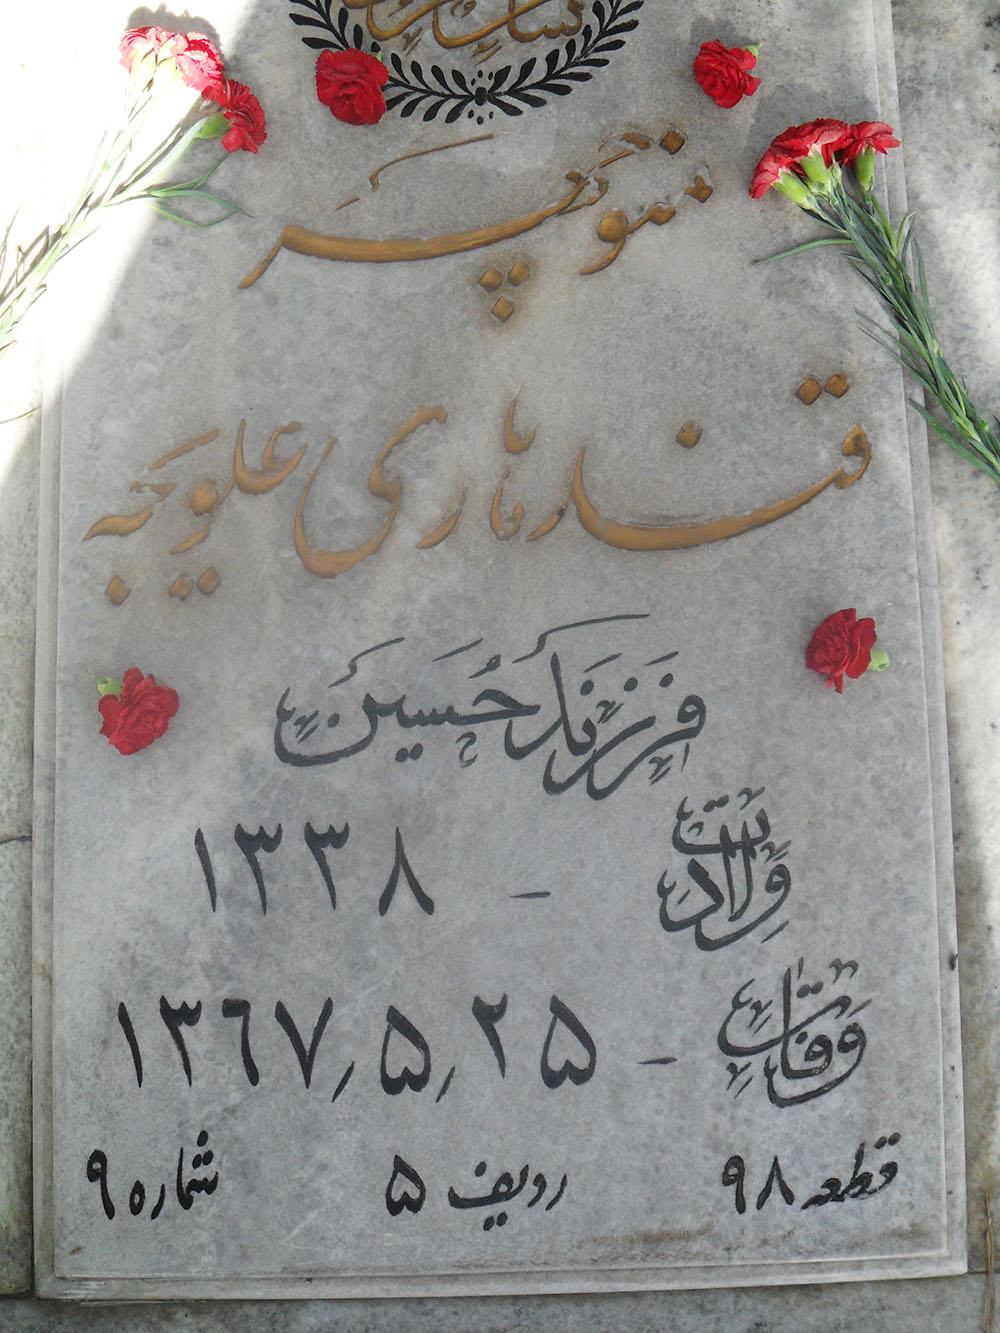 منوچهر
قندهاری علویجه
فرزند حسین
ولادت - ۱۳۳۸
وفات - ۱۳۶۷٫۵٫۲۵
قطعه ۹۸ ردیف ۵ شماره ۹